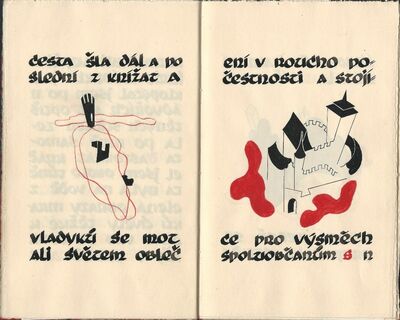 cesta šla dál a po
slední z křížat a
vladyků se mot
ali světem obleč
ení v roucho po-
čestnosti a stojí-
ce pro výsměch
spoluobčanům s n